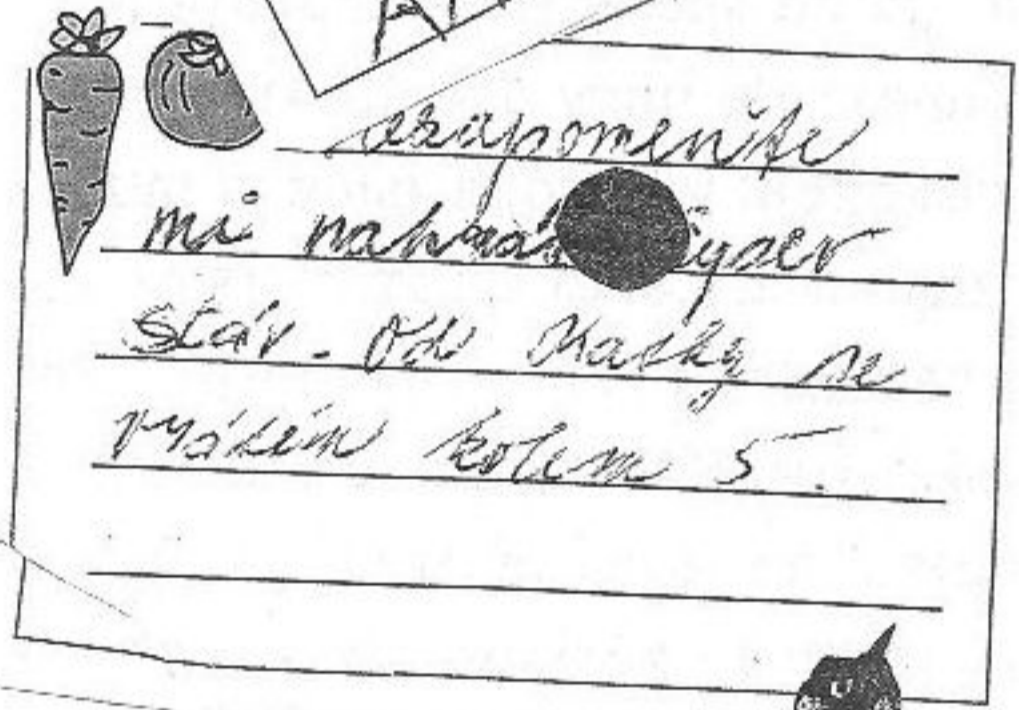 ezapomeňte
mi nahrá
Od Kačky se
vrátím kolem 5.